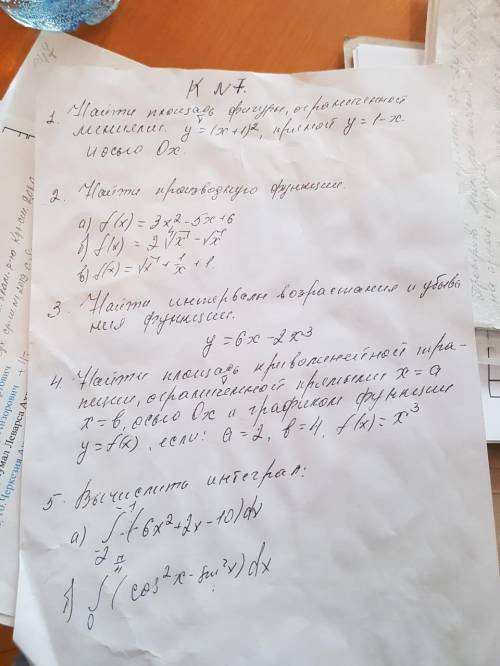 К N 7.
1. Найти площадь фигуры, ограниченной
линиями. y = (x+1)², прямой y = 1-x
и осью Ox.
2. Найти производную функции.
а) f(x) = 3x² - 5x + 6
б) f(x) = 2∜x - √x
в) f(x) = √x + 1/x + 1.
3. Найти интервалы возрастания и убыва
ния функции.
y = 6x - 2x³
4. Найти площадь криволинейной тра-
пеции, ограниченной прямыми x = a
x = b, осью Ox и графиком функции
y = f(x), если: a = 2, b = 4, f(x) = x³
5. Вычислить интеграл:
а) ∫₋₂⁻¹ (-6x² + 2x - 10) dx
б) ∫₀^(π/4) (cos²x - sin²x) dx